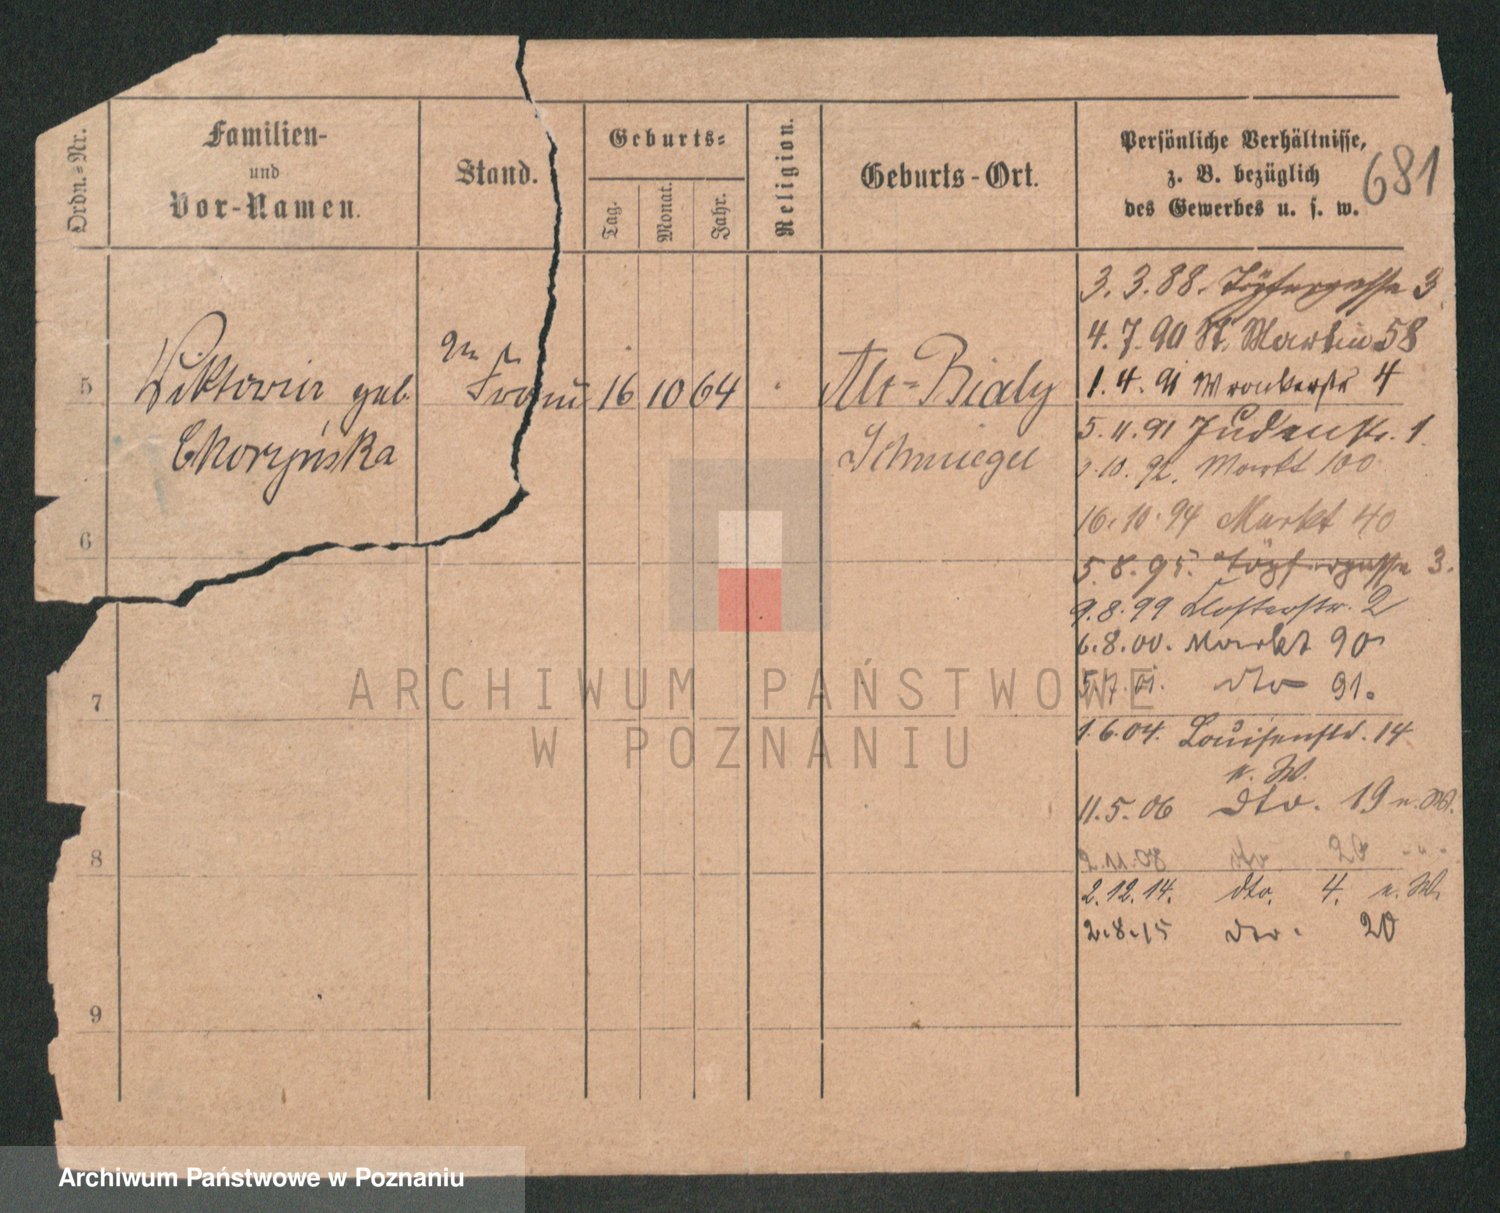 681
Ordn.-Nr.
Familien-
und
Vor-Namen.
Stand.
Geburts-
Tag.
Monat.
Jahr.
Religion.
Geburts-Ort.
Persönliche Verhältnisse,
z. B. bezüglich
des Gewerbes u. s. w.
5
Viktoria geb.
Skorzyńska
2te
Frau
16
10
64
Alt-Bialy
Schmiegel
3. 3. 88. Töpfergasse 3
4. 7. 90 St. Martin 58
1. 4. 91 Wronkerstr 4
5. 11. 91 Judenstr. 1.
10. 92. Markt 100
16. 10. 94 Markt 40
5. 8. 95. Töpfergasse 3.
9. 8. 99 Klosterstr. 2
6. 8. 00. Markt 90
5. 7. 01. dto 91.
1. 6. 04. Louisenstr. 14
n. W.
11. 5. 06 dto. 19 n. W.
2. 11. 08 dto 20 - " -
2. 12. 14. dto. 4. n. W.
2. 8. 15 dto. 20
6
7
8
9
ARCHIWUM PAŃSTWOWE
W POZNANIU
Archiwum Państwowe w Poznaniu